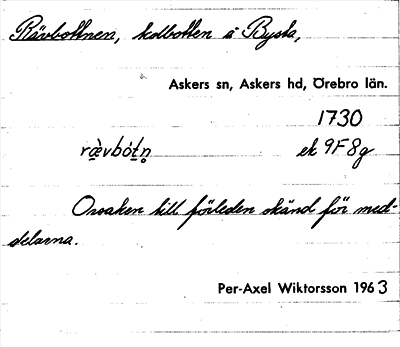 Rävbottnen, kolbotten å Rysta,
Askers sn, Askers hd, Örebro län.
1730
rä̀vbót̥n̥ ek 9F8g
Orsaken till förleden okänd för med-
delarna.
Per-Axel Wiktorsson 1963